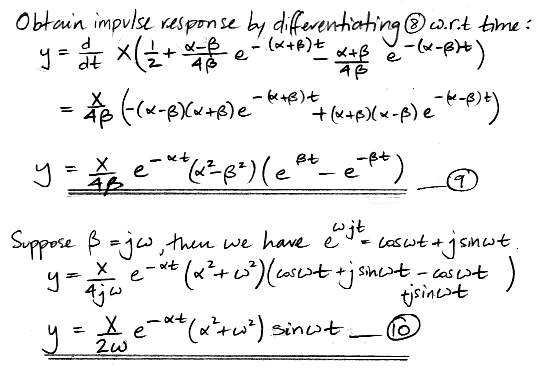 Obtain impulse response by differentiating ⑧ w.r.t time:
y = d/dt X(1/2 + (α-β)/4β e^-(α+β)t - (α+β)/4β e^-(α-β)t)
= X/4β (-(α-β)(α+β)e^-(α+β)t + (α+β)(α-β)e^-(α-β)t)
y = X/4β e^-αt (α²-β²)(e^βt - e^-βt) — ⑨
Suppose β = jω, then we have e^ωjt = cosωt + jsinωt.
y = X/4jω e^-αt (α²+ω²)(cosωt + jsinωt - cosωt + jsinωt)
y = X/2ω e^-αt (α²+ω²) sinωt — ⑩